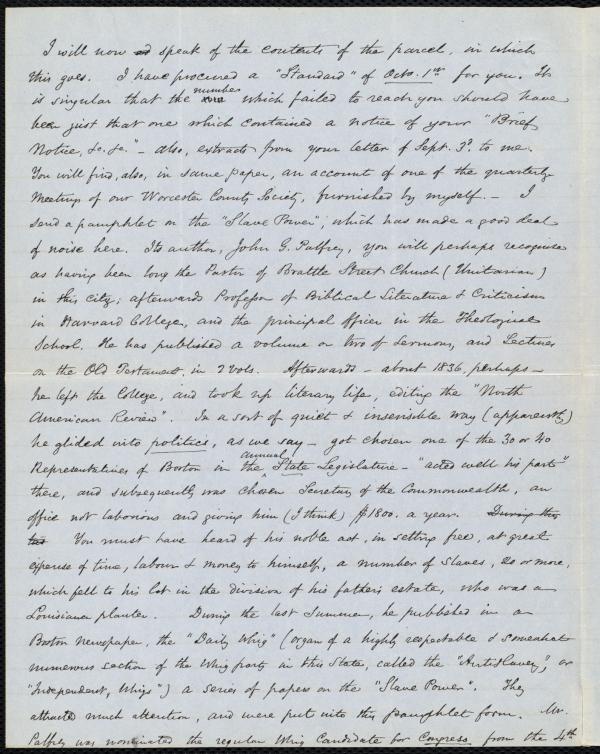 I will now speak of the contents of the parcel, in which
this goes. I have procured a "Standard" of Octo. 1st for you. It
is singular that the number which failed to reach you should have
been just that one which contained a notice of your "Brief
Notice, &c. &c." - also, extracts from your letter of Sept. 3d. to me.
You will find, also, in same paper, an account of one of the quarterly
Meetings of our Worcester County Society, furnished by myself. - I
send a pamphlet on the "Slave Power", which has made a good deal
of noise here. Its author, John G. Palfrey, you will perhaps recognise
as having been long the Pastor of Brattle Street Church (Unitarian)
in this city; afterwards Professor of Biblical Literature & Criticism
in Harvard College, and the principal officer in the Theological
School. He has published a volume or two of Sermons, and Lectures
on the Old Testament, in 2 vols. Afterwards - about 1836, perhaps -
he left the College, and took up literary life, editing the "North
American Review". In a sort of quiet & insensible way (apparently)
he glided into politics, as we say - got chosen one of the 30 or 40
Representatives of Boston in the annual State Legislature - "acted well his part"
there, and subsequently was chosen Secretary of the Commonwealth, an
office not laborious and giving him (I think) $1800. a year. During this
You must have heard of his noble act, in setting free, at great
expense of time, labour & money to himself, a number of Slaves, 20 or more,
which fell to his lot in the division of his father's estate, who was a
Louisiana planter. During the last Summer, he published in a
Boston Newspaper, the "Daily Whig" (organ of a highly respectable & somewhat
numerous section of the Whig party in this State, called the "Antislavery", or
"Independent, Whigs") a series of papers on the "Slave Power". They
attracted much attention, and were put into this pamphlet form. Mr.
Palfrey was nominated the regular Whig Candidate for Congress from the 4th